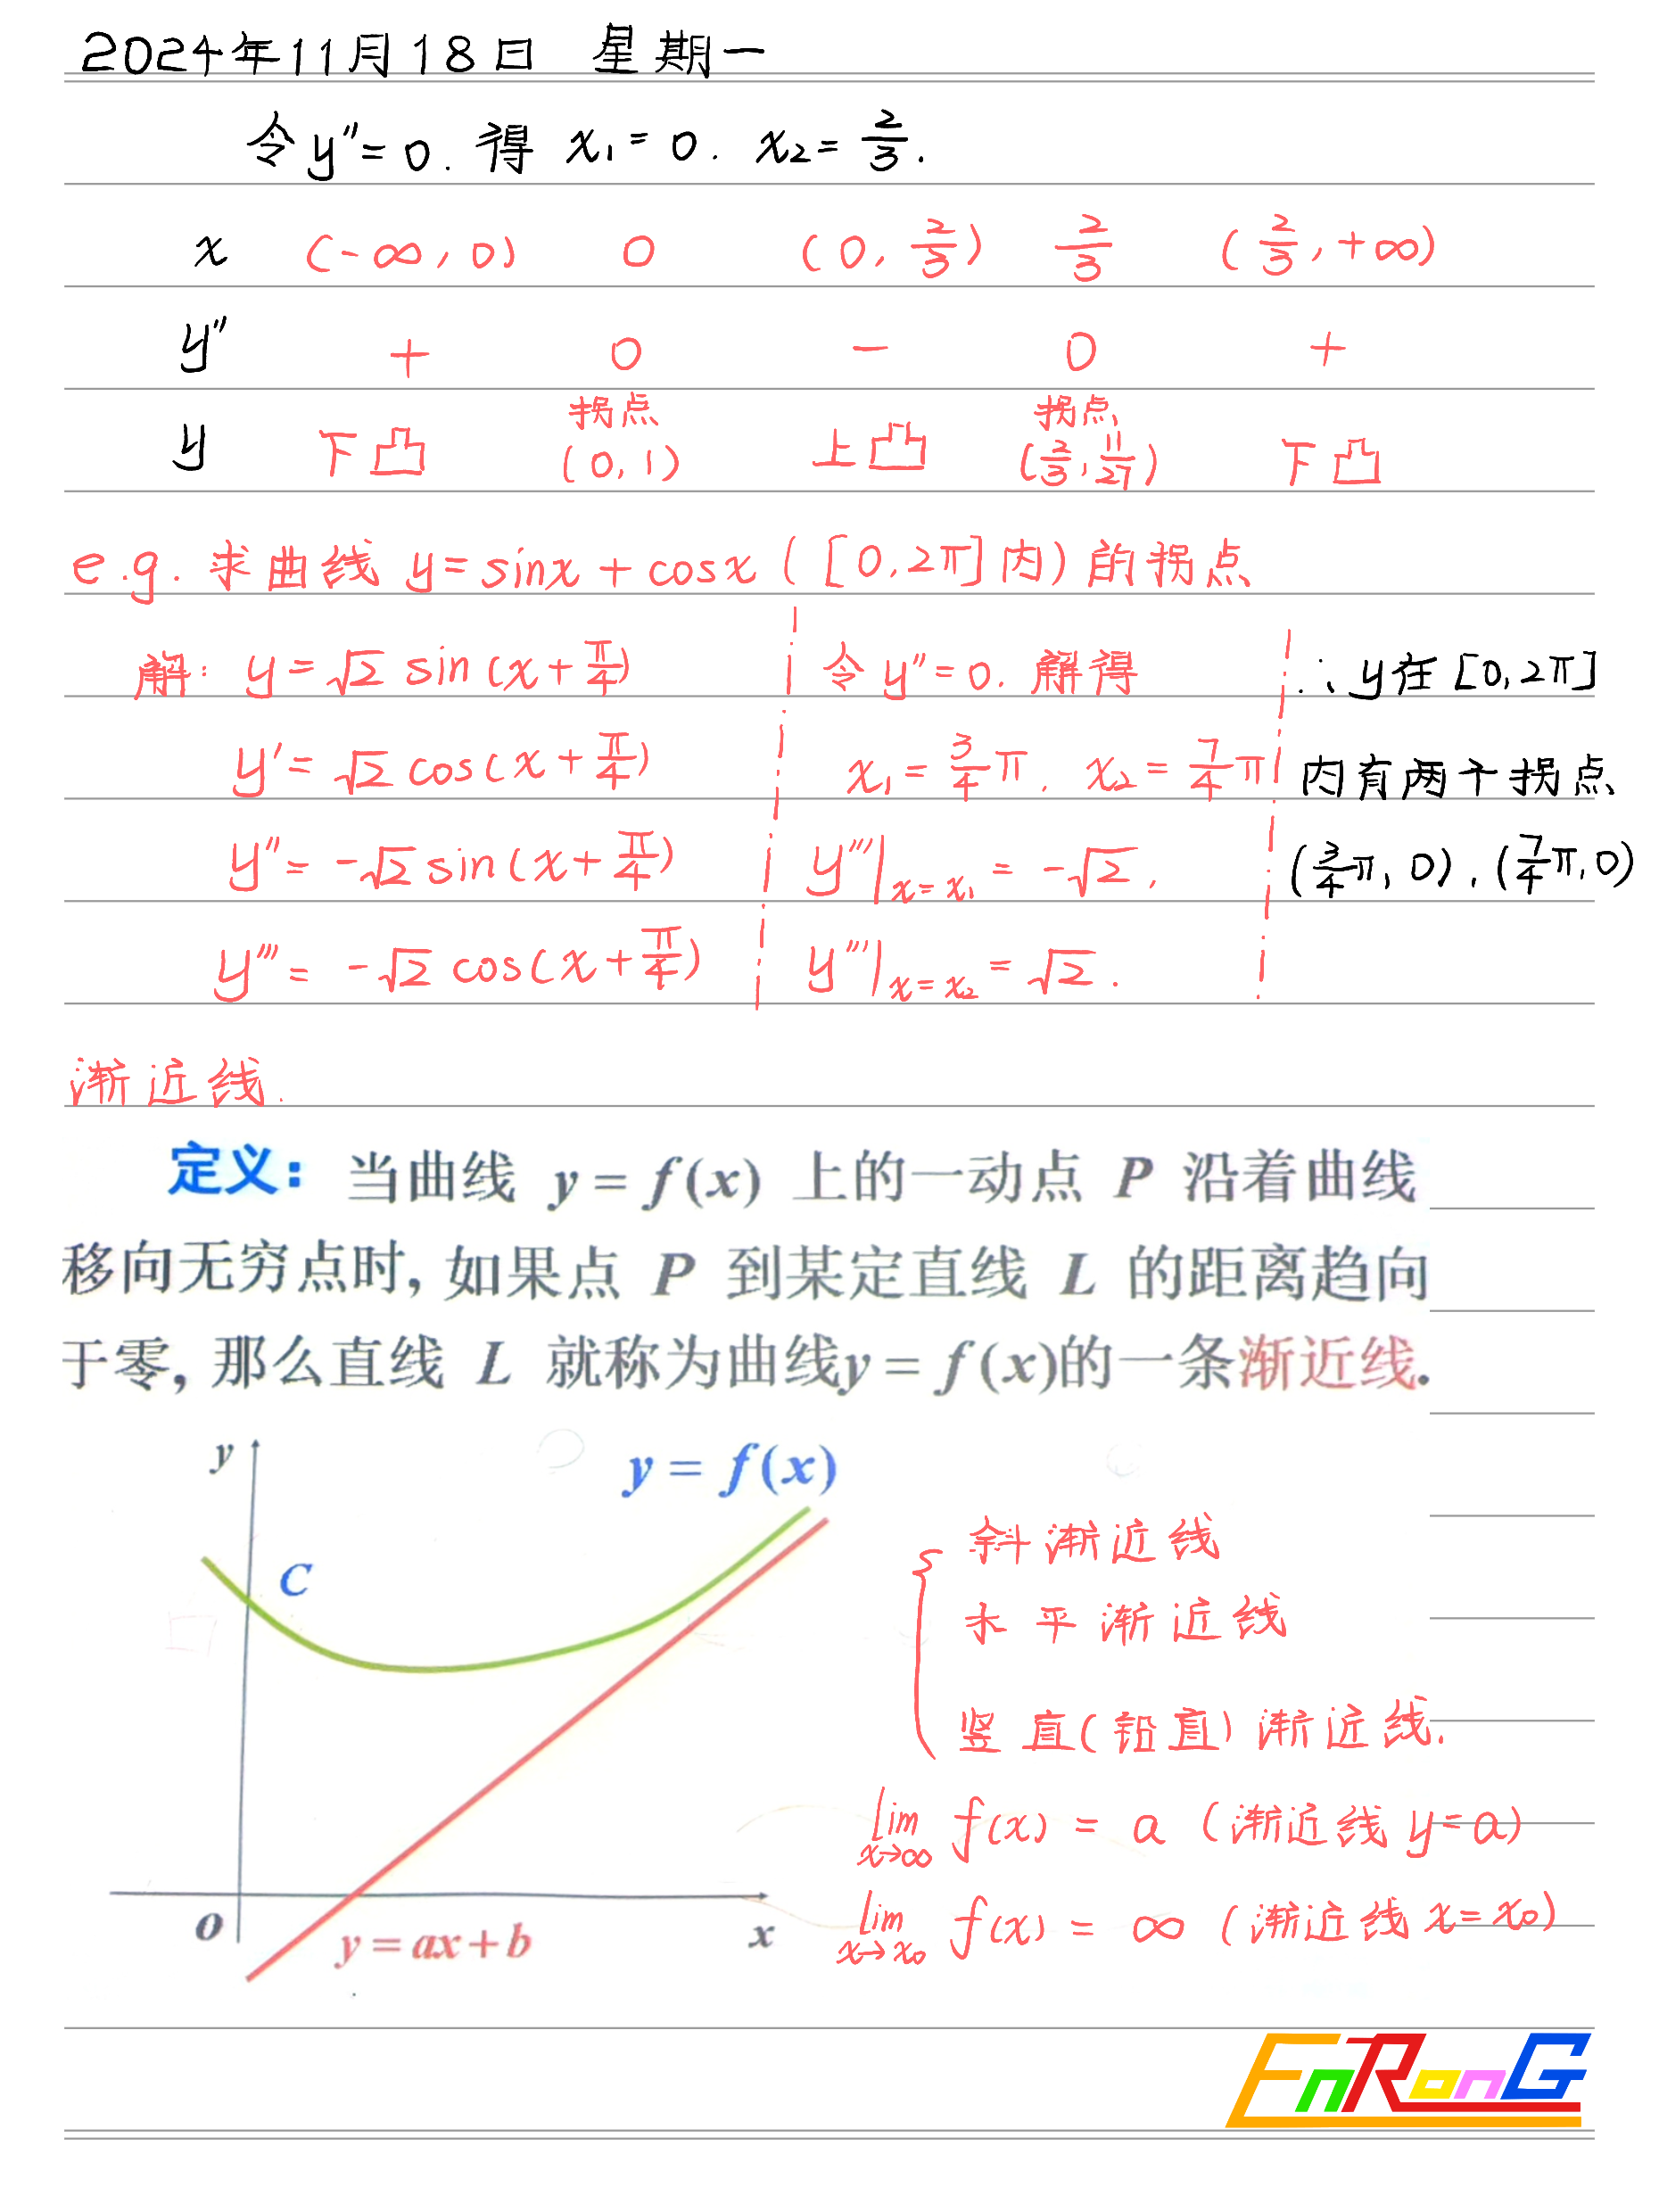 2024年11月18日 星期一
令y''=0. 得 x₁=0. x₂=2/3.
x (-∞,0) 0 (0,2/3) 2/3 (2/3,+∞)
y'' + 0 - 0 +
y 下凸 拐点(0,1) 上凸 拐点(2/3,11/27) 下凸
e.g. 求曲线 y=sinx+cosx ([0,2π]内) 的拐点
解: y=√2 sin(x+π/4)
y'=√2 cos(x+π/4)
y''= -√2 sin(x+π/4)
y'''= -√2 cos(x+π/4)
令y''=0. 解得
x₁=3/4π. x₂=7/4π
y'''|x=x₁ = -√2,
y'''|x=x₂ = √2.
∴y在[0,2π]
内有两个拐点
(3/4π,0),(7/4π,0)
渐近线.
定义: 当曲线 y=f(x) 上的一动点 P 沿着曲线
移向无穷点时, 如果点 P 到某定直线 L 的距离趋向
于零, 那么直线 L 就称为曲线y=f(x)的一条渐近线.
y
y=f(x)
C
O
y=ax+b
x
斜渐近线
水平渐近线
竖直(铅直)渐近线.
lim x→∞ f(x) = a (渐近线 y=a)
lim x→x₀ f(x) = ∞ (渐近线 x=x₀)
EnRonG